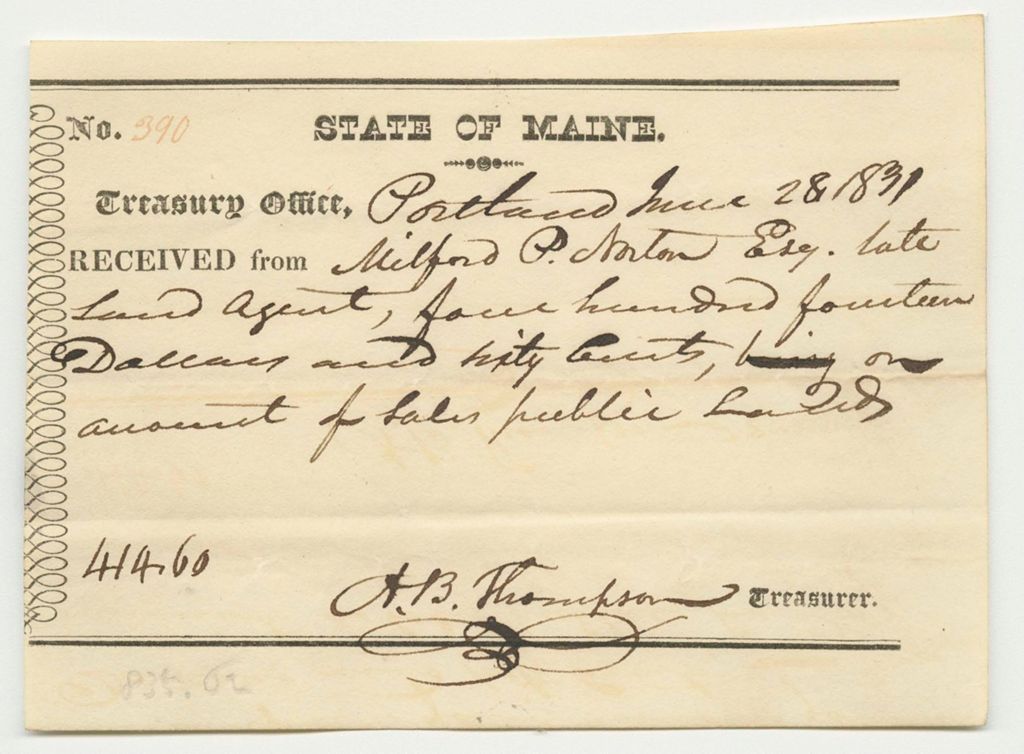 No. 390 STATE OF MAINE.
Treasury Office, Portland June 28 1831
RECEIVED from Milford P. Norton Esq. late
Land Agent, four hundred fourteen
Dollars and sixty Cents, being on
amount of Sales public Lands
414.60
A. B. Thompson Treasurer.
835.62